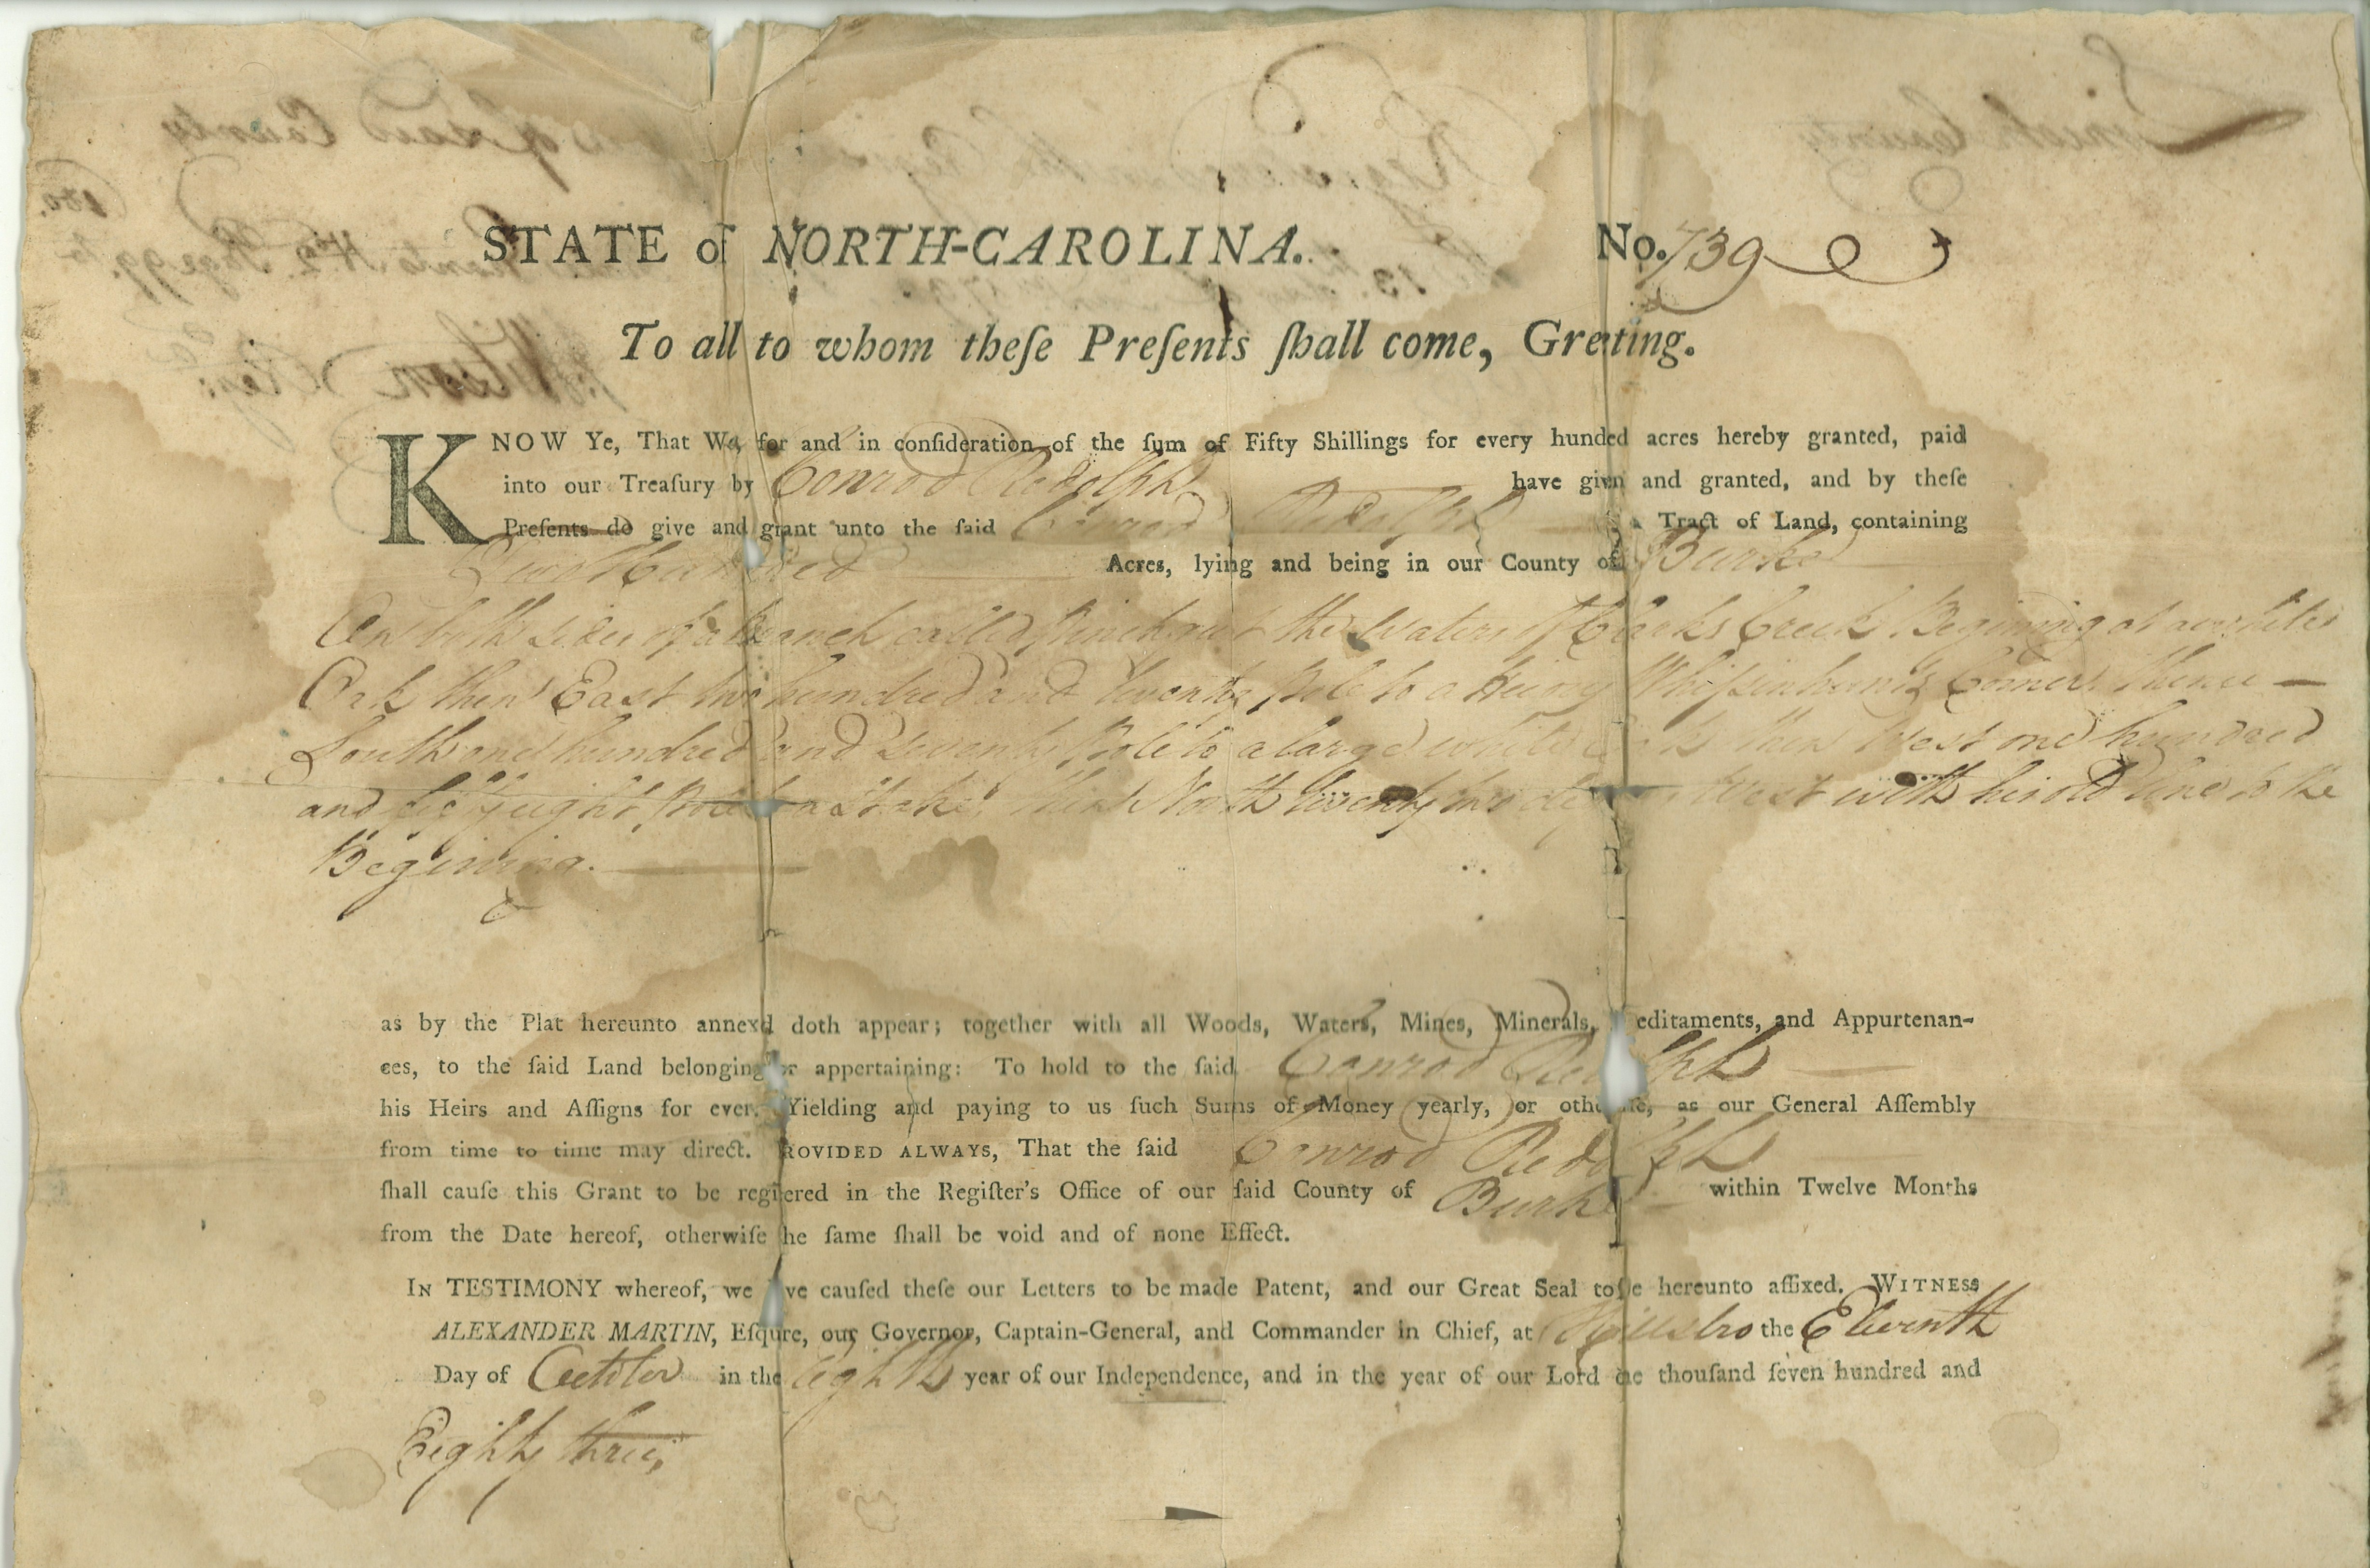 STATE of NORTH-CAROLINA. No. 739
To all to whom theſe Preſents ſhall come, Greeting.
KNOW Ye, That We, for and in conſideration of the ſum of Fifty Shillings for every hunded acres hereby granted, paid
into our Treaſury by Conrod Redolph have given and granted, and by theſe
Preſents do give and grant unto the ſaid Conrod Redolph a Tract of Land, containing
Two Hundred Acres, lying and being in our County of Burke
On both sides of a Branch called the waters of Clarks Creek Begining at a white
Oak then East two hundred and Pole to a Whisinhunts Corner thence
South one hundred and seventy Pole to a large white Oak then West one hundred
and eight Pole to a Stake then North twenty two West with his old line to the
Begining.
as by the Plat hereunto annexd doth appear; together with all Woods, Waters, Mines, Minerals, editaments, and Appurtenan-
ces, to the ſaid Land belonging or appertaining: To hold to the ſaid Conrod Redolph
his Heirs and Aſſigns for ever. Yielding and paying to us ſuch Sums of Money yearly, or otherwiſe, as our General Aſſembly
from time to time may direct. PROVIDED ALWAYS, That the ſaid Conrod Redolph
ſhall cauſe this Grant to be regiered in the Regiſter's Office of our ſaid County of Burke within Twelve Months
from the Date hereof, otherwiſe he ſame ſhall be void and of none Effect.
IN TESTIMONY whereof, we ve cauſed theſe our Letters to be made Patent, and our Great Seal to be hereunto affixed. WITNESS
ALEXANDER MARTIN, Eſqure, our Governor, Captain-General, and Commander in Chief, at Hillsbro the Eleventh
Day of October in the eighth year of our Independence, and in the year of our Lord one thouſand ſeven hundred and
Eighty three,